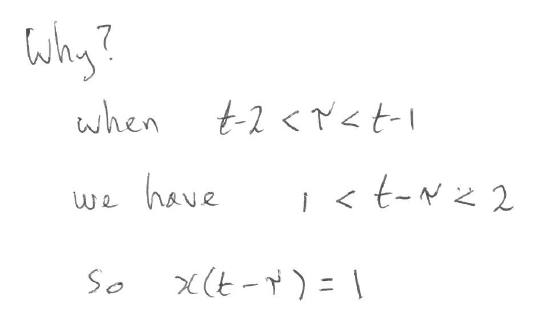 Why?
when t-2 < τ < t-1
we have 1 < t-τ < 2
So x(t-τ) = 1